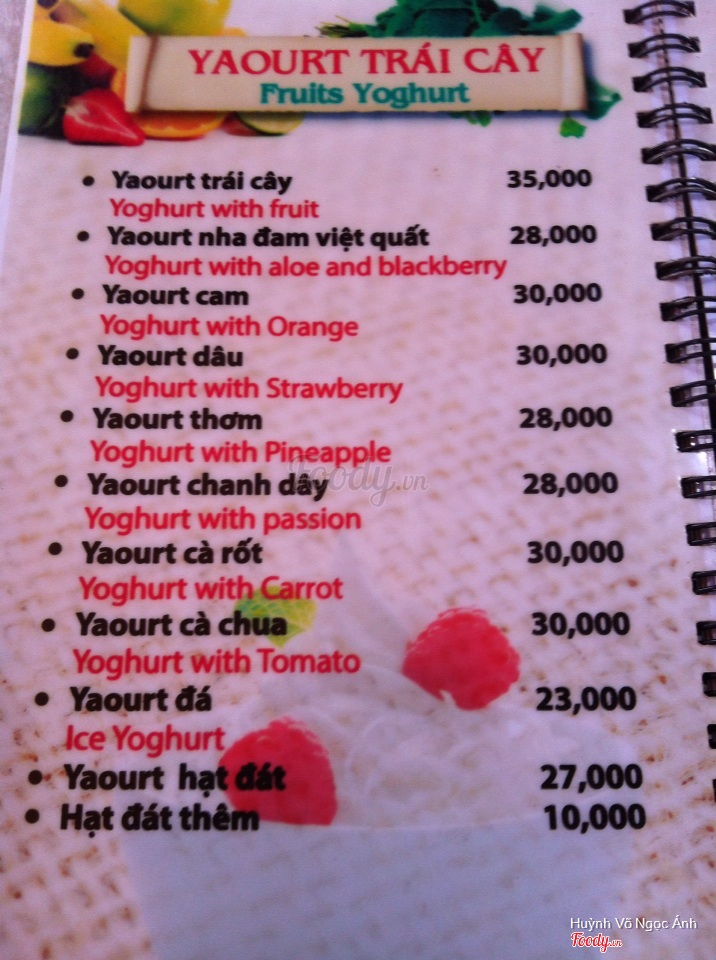 YAOURT TRÁI CÂY
Fruits Yoghurt
• Yaourt trái cây 35,000
Yoghurt with fruit
• Yaourt nha đam việt quất 28,000
Yoghurt with aloe and blackberry
• Yaourt cam 30,000
Yoghurt with Orange
• Yaourt dâu 30,000
Yoghurt with Strawberry
• Yaourt thơm 28,000
Yoghurt with Pineapple
• Yaourt chanh dây 28,000
Yoghurt with passion
• Yaourt cà rốt 30,000
Yoghurt with Carrot
• Yaourt cà chua 30,000
Yoghurt with Tomato
• Yaourt đá 23,000
Ice Yoghurt
• Yaourt hạt đát 27,000
• Hạt đát thêm 10,000
Foody.vn
Huỳnh Võ Ngọc Ánh
Foody.vn